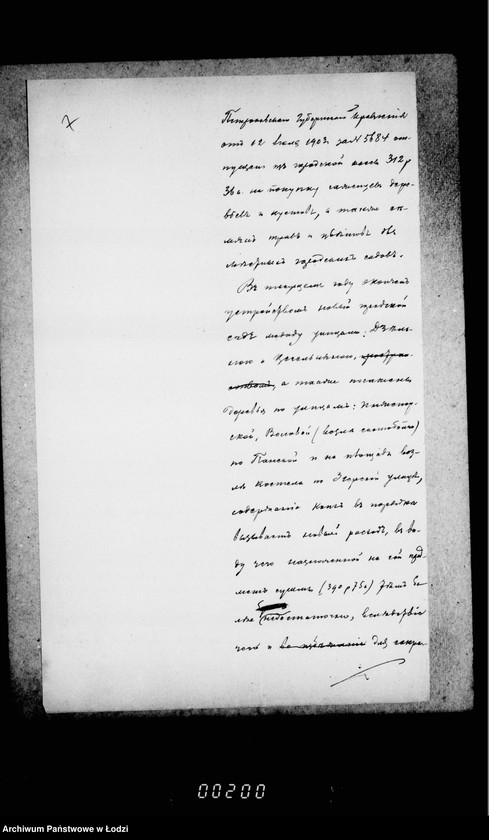 Петроковскаго Губернскаго Правленія
отъ 12 Іюля 1903 г. за N 5684 от-
изъ городской кассы 312 р
36 к. на покупку саженцевъ дере-
вьевъ и кустовъ, а также сѣ-
мянъ травъ и цвѣтовъ для
городскихъ садовъ.
Въ текущемъ году оконченъ
устройствомъ новый городской
садъ между улицами: Дзѣль-
ною и Цегельняною,
а также посажены
деревья по улицамъ:
ской, (возлѣ скотобойни)
по Панской и на площади воз-
лѣ костела по Згерской улицѣ,
содержаніе коихъ въ порядкѣ
вызываетъ новый расходъ, въ ви-
ду чего назначенной на сей пред-
метъ суммы (390 р 75 к)
недостаточно, вслѣдствіе
чего и для
00200
Archiwum Państwowe w Łodzi